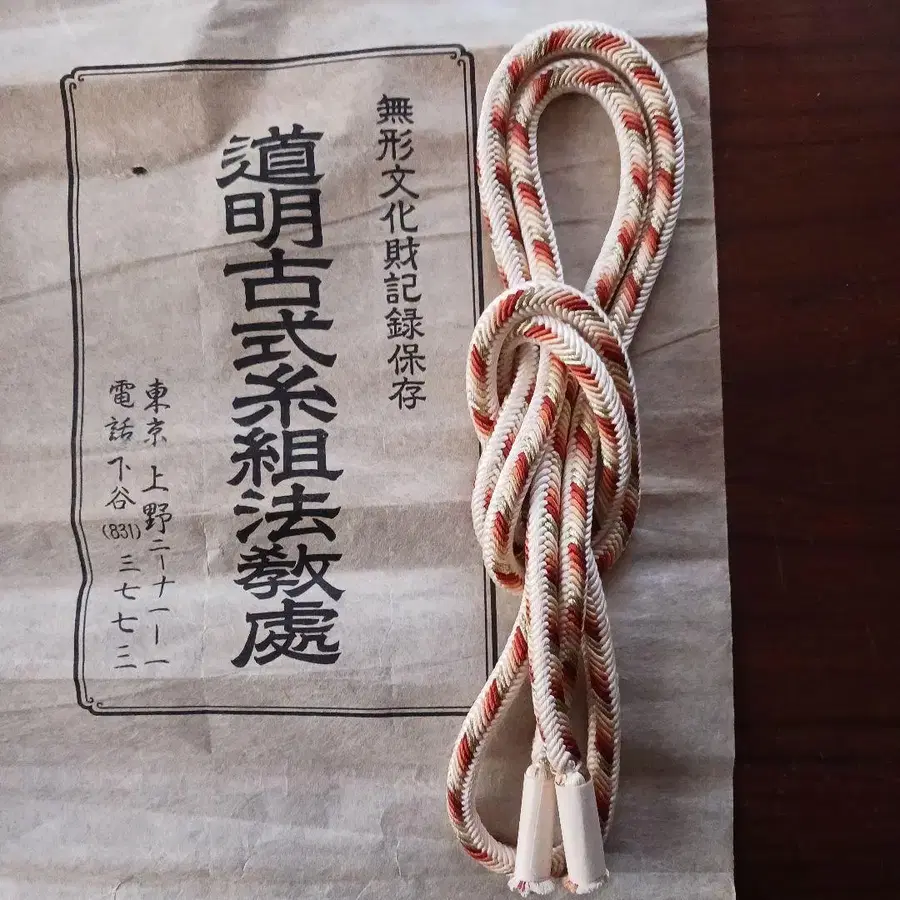 無形文化財記録保存
道明古式糸組法教処
東京上野二ー十一ー一
電話下谷(831)三七七三